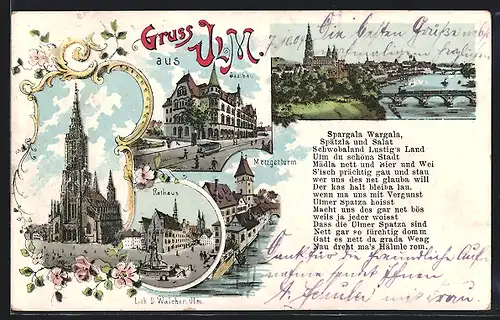 Gruss aus ULM
7. 10. 01
Die besten Grüße nebst
Saalbau
Metzgerturm
Rathaus
Lith. D. Walcher, Ulm.
Spargala Wargala,
Spätzla und Salat
Schwobaland Lustig's Land
Ulm du schöna Stadt
Mädla nett und Bier und Wei
S'isch prächtig gau und stau
wer uns des net glauba will
Der kas halt bleiba lau.
wenn ma uns mit Vergunst
Ulmer Spatza hoisst
Macht uns des gar net bös
weils ja jeder woisst
Dass die Ulmer Spatza sind
Nett gar so fürchtig domm
Gatt es nett da grada Weag
Nau dreht ma's Hälmle rom.
Dank für die freundliche Auf-
nahme sendet Ihnen